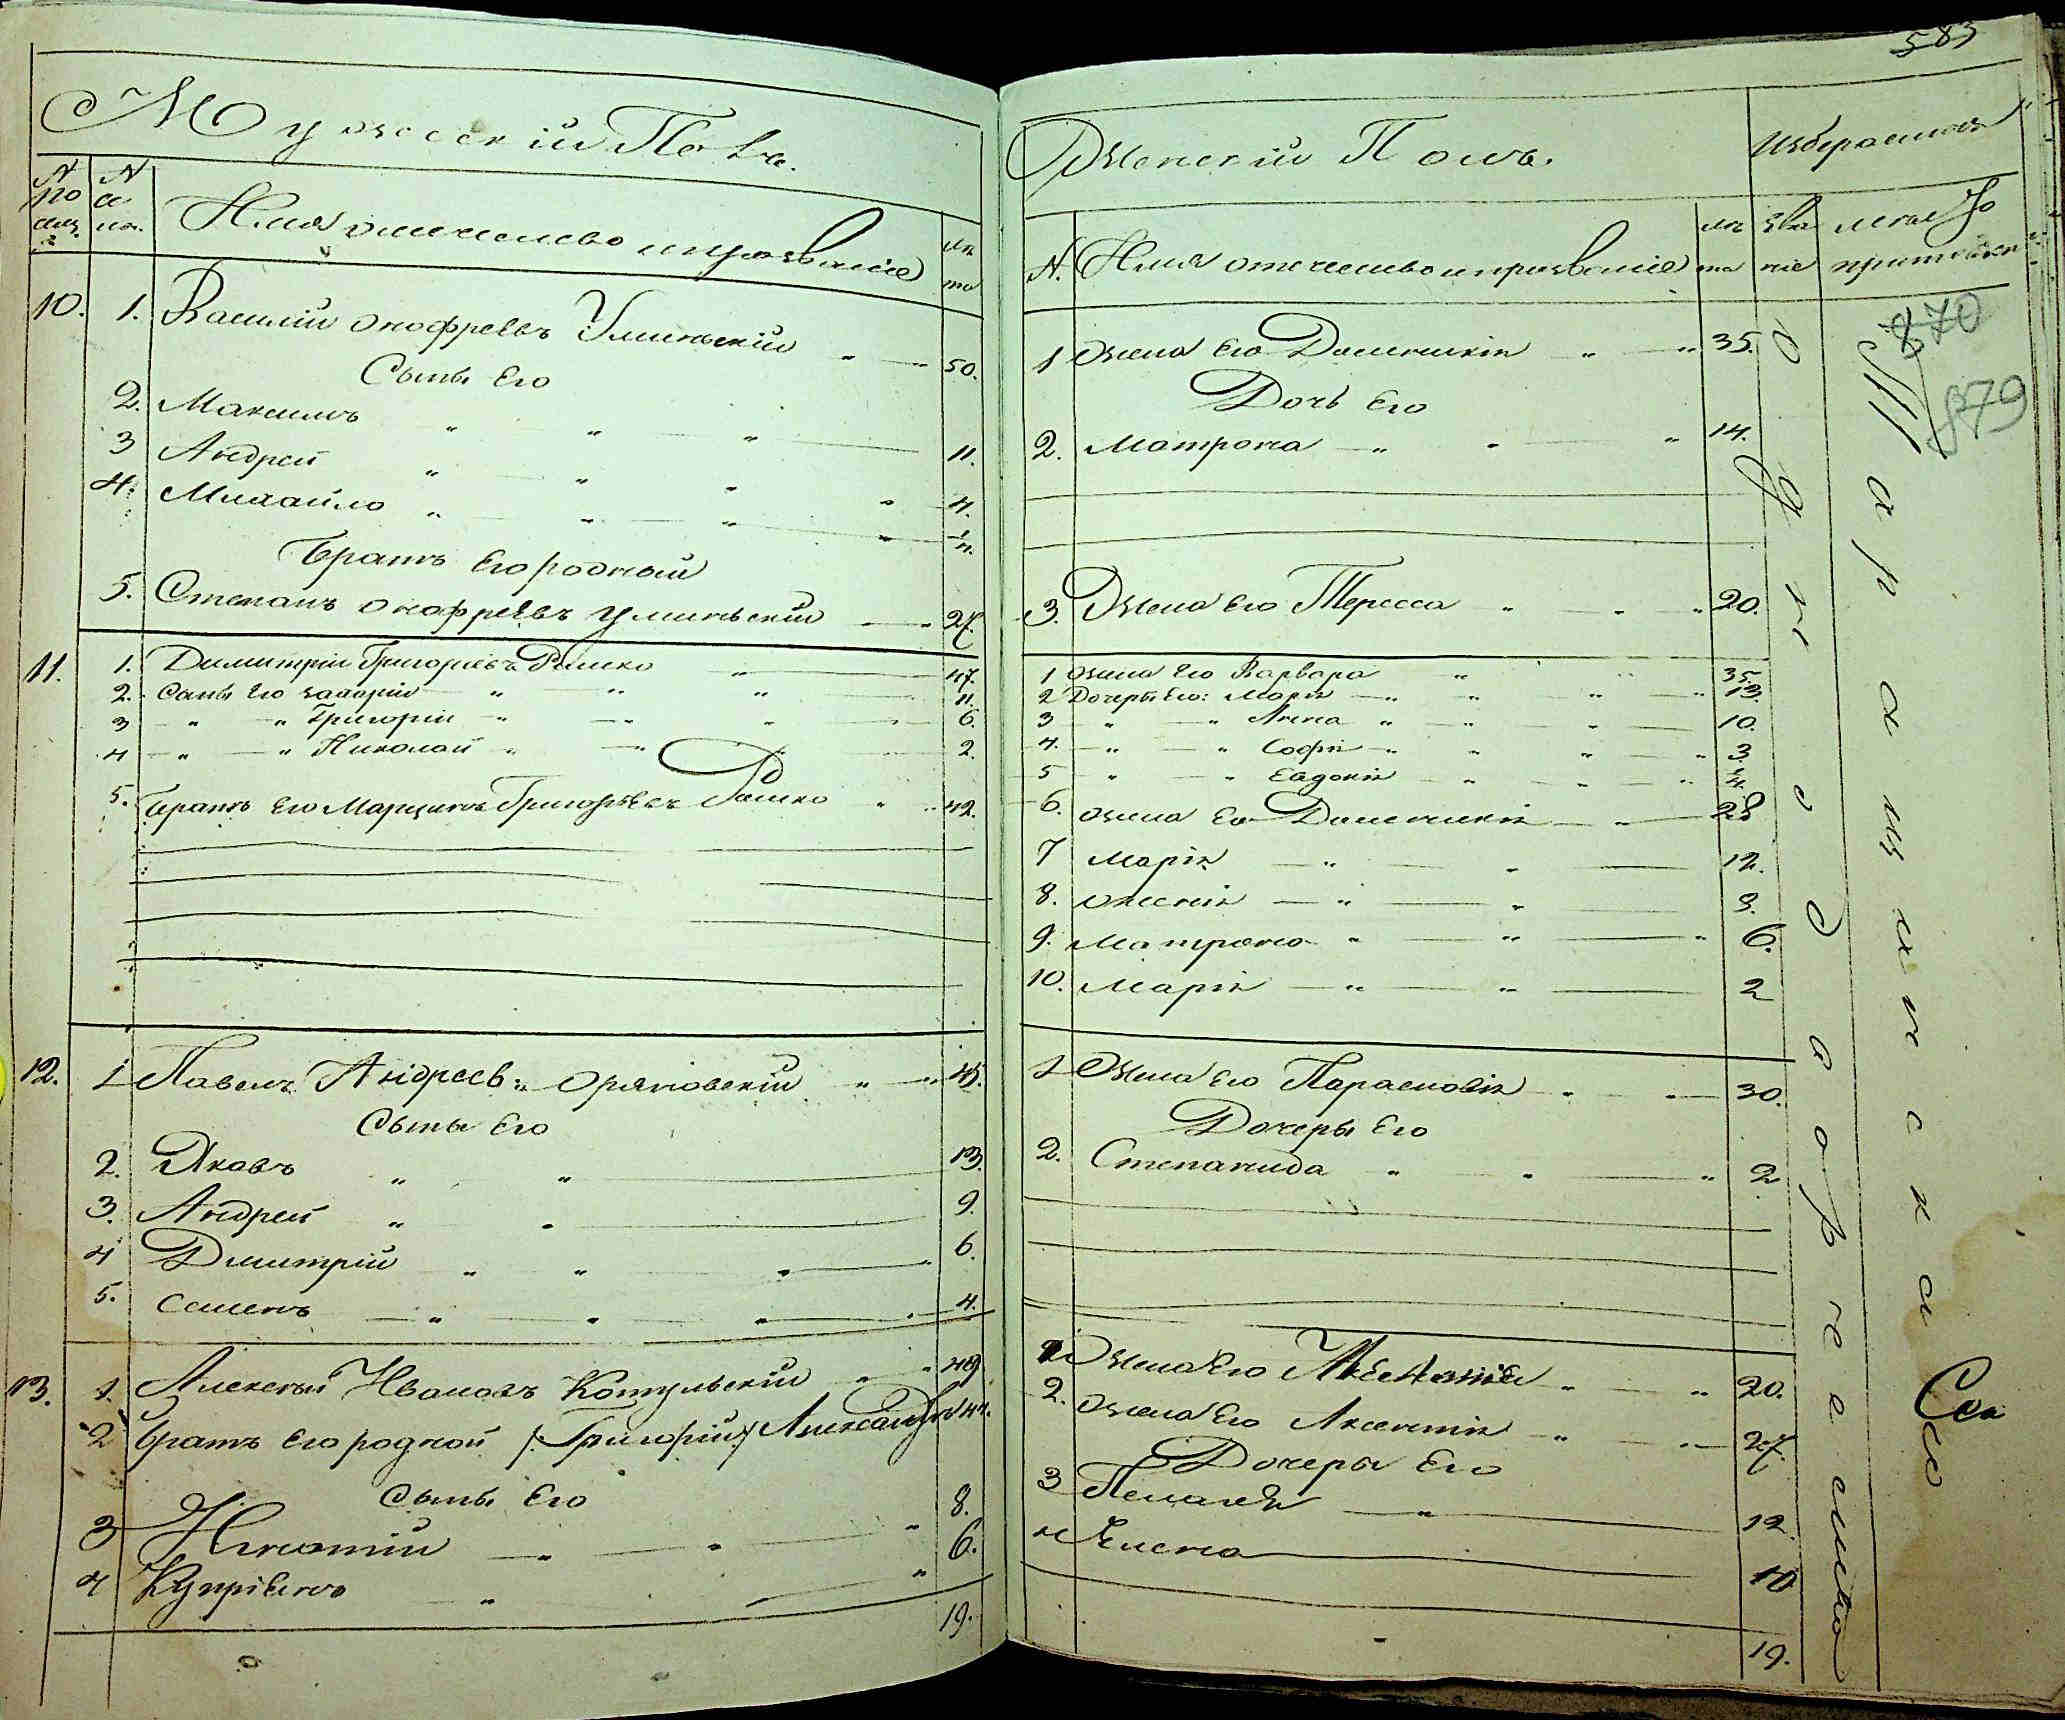 Мужеский Полъ.
№ по
№
Имя отечество и прозвание
лѣ
та
10. 1. Василий Онофреевъ Улиньский " — " 50.
Сыны Его
2. Максимъ " " " 11.
3 Андрей " " " " 4.
4. Михайло " " " "
Братъ Его родный
5. Степанъ Онофреевъ Улиньский — " 27.
11. 1. Димитрий Григориевъ Рашко " 47.
2. Сыны Его " " " 11.
3 " " Григорий " " " 6.
4 " " Николай " " 2.
5. Братъ Его Марцинъ Григорьевъ Рашко " " 42.
12. 1 Павелъ Андреевъ Оряновский " " 45.
Сыны Его
2. Яковъ " " 13.
3. Андрей " " 9.
4 Дмитрий " " " " 6.
5. Семенъ " " " " 4.
13. 1. Алексей Ивановъ Котульский " " 49.
2 Братъ Его родной /: Григорий :/ Александръ 44.
Сыны Его
3 Игнатий " " " 8.
4 Куприянъ " " 6.
19.
583
Женский Полъ.
№. Имя отечество и прозвание
лѣ
та
зва
ние
870
879
1 Жена Его Домникия " " 35.
Дочь Его
2. Матрона " " " 14.
3. Жена Его Тересса " " " 20.
1 Жена Его Варвара " " 35.
2 Дочеры Его: Мария " " " " 13.
3 " " Анна " " " 10.
4. " " София " " " " 3.
5 " " Евдокия " " "
6. Жена Его Домникия " 28
7 Мария " " 12.
8. Ксения " " 9.
9. Матрона " " " 6.
10. Мария " " 2
1 Жена Его Парасковия " " 30.
Дочеры Его
2. Степанида " " " 2
1 Жена Его " " 20.
2. Жена Его Аксентия " " 27
Дочеры Его
3 Пелагея " 12.
4 Елена 10
19.